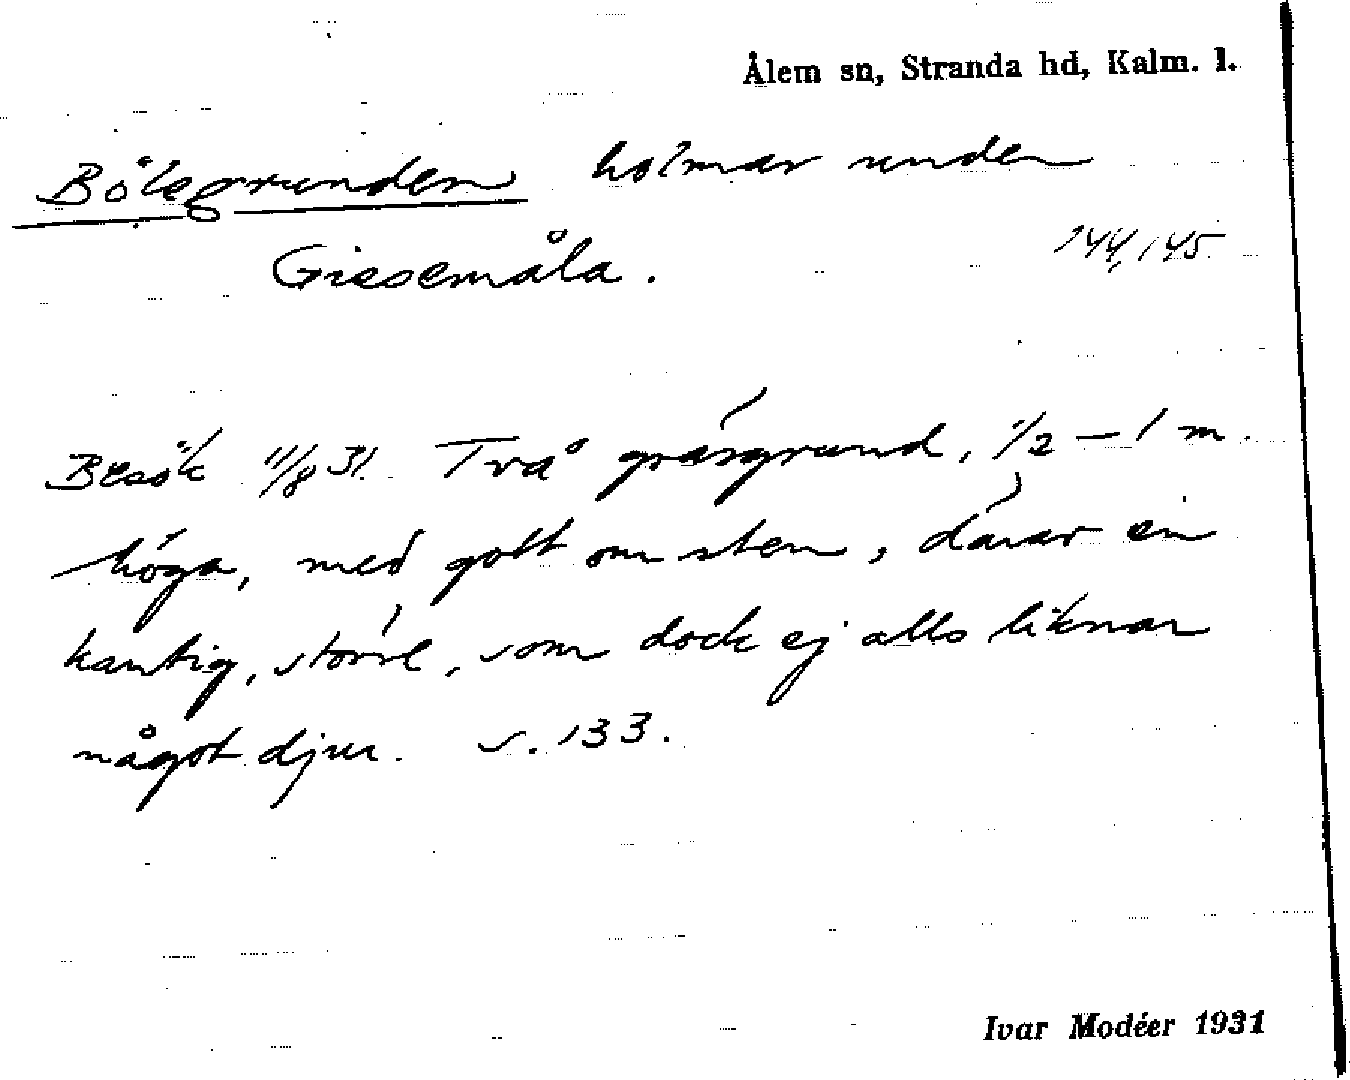 Ålem sn, Stranda hd, Kalm. l.
Bölegrunden holmar under
Giesemåla. 144, 145.
Besök 11/8 31. Två gräsgrund, 1/2 – 1 m.
höga, med gott om sten, därav en
kantig, större, som dock ej alls liknar
något djur. s. 133.
Ivar Modéer 1931